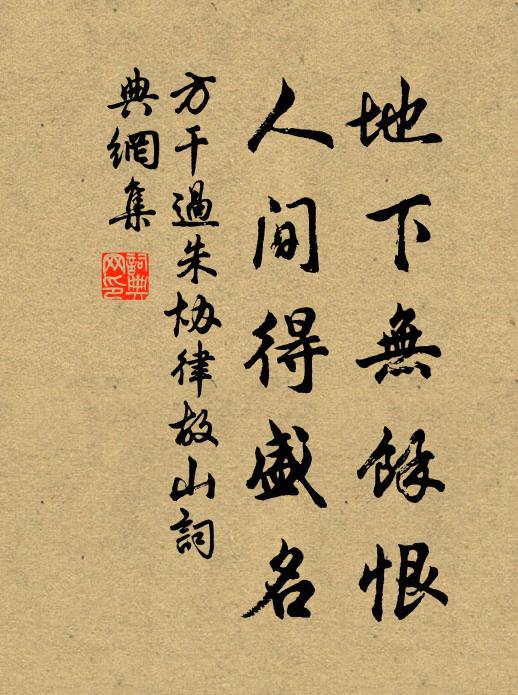 地下無餘恨
人间得盛名
方干過朱協律故山詞
典網集
詞典
网印